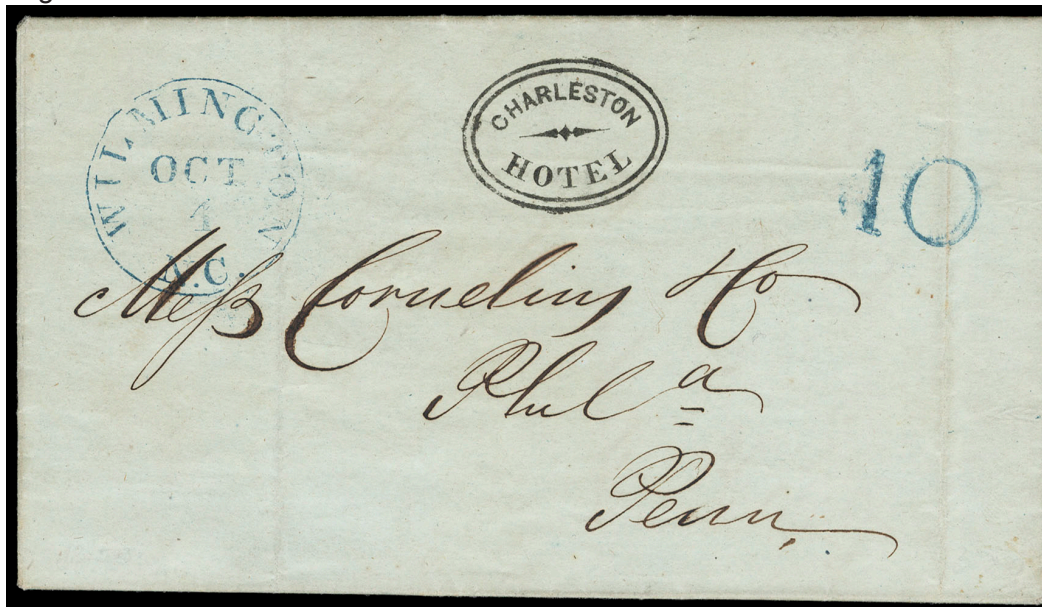 WILMINGTON
OCT
N.C.
CHARLESTON
HOTEL
10
Mess Cornelius & Co
Phila
Penn